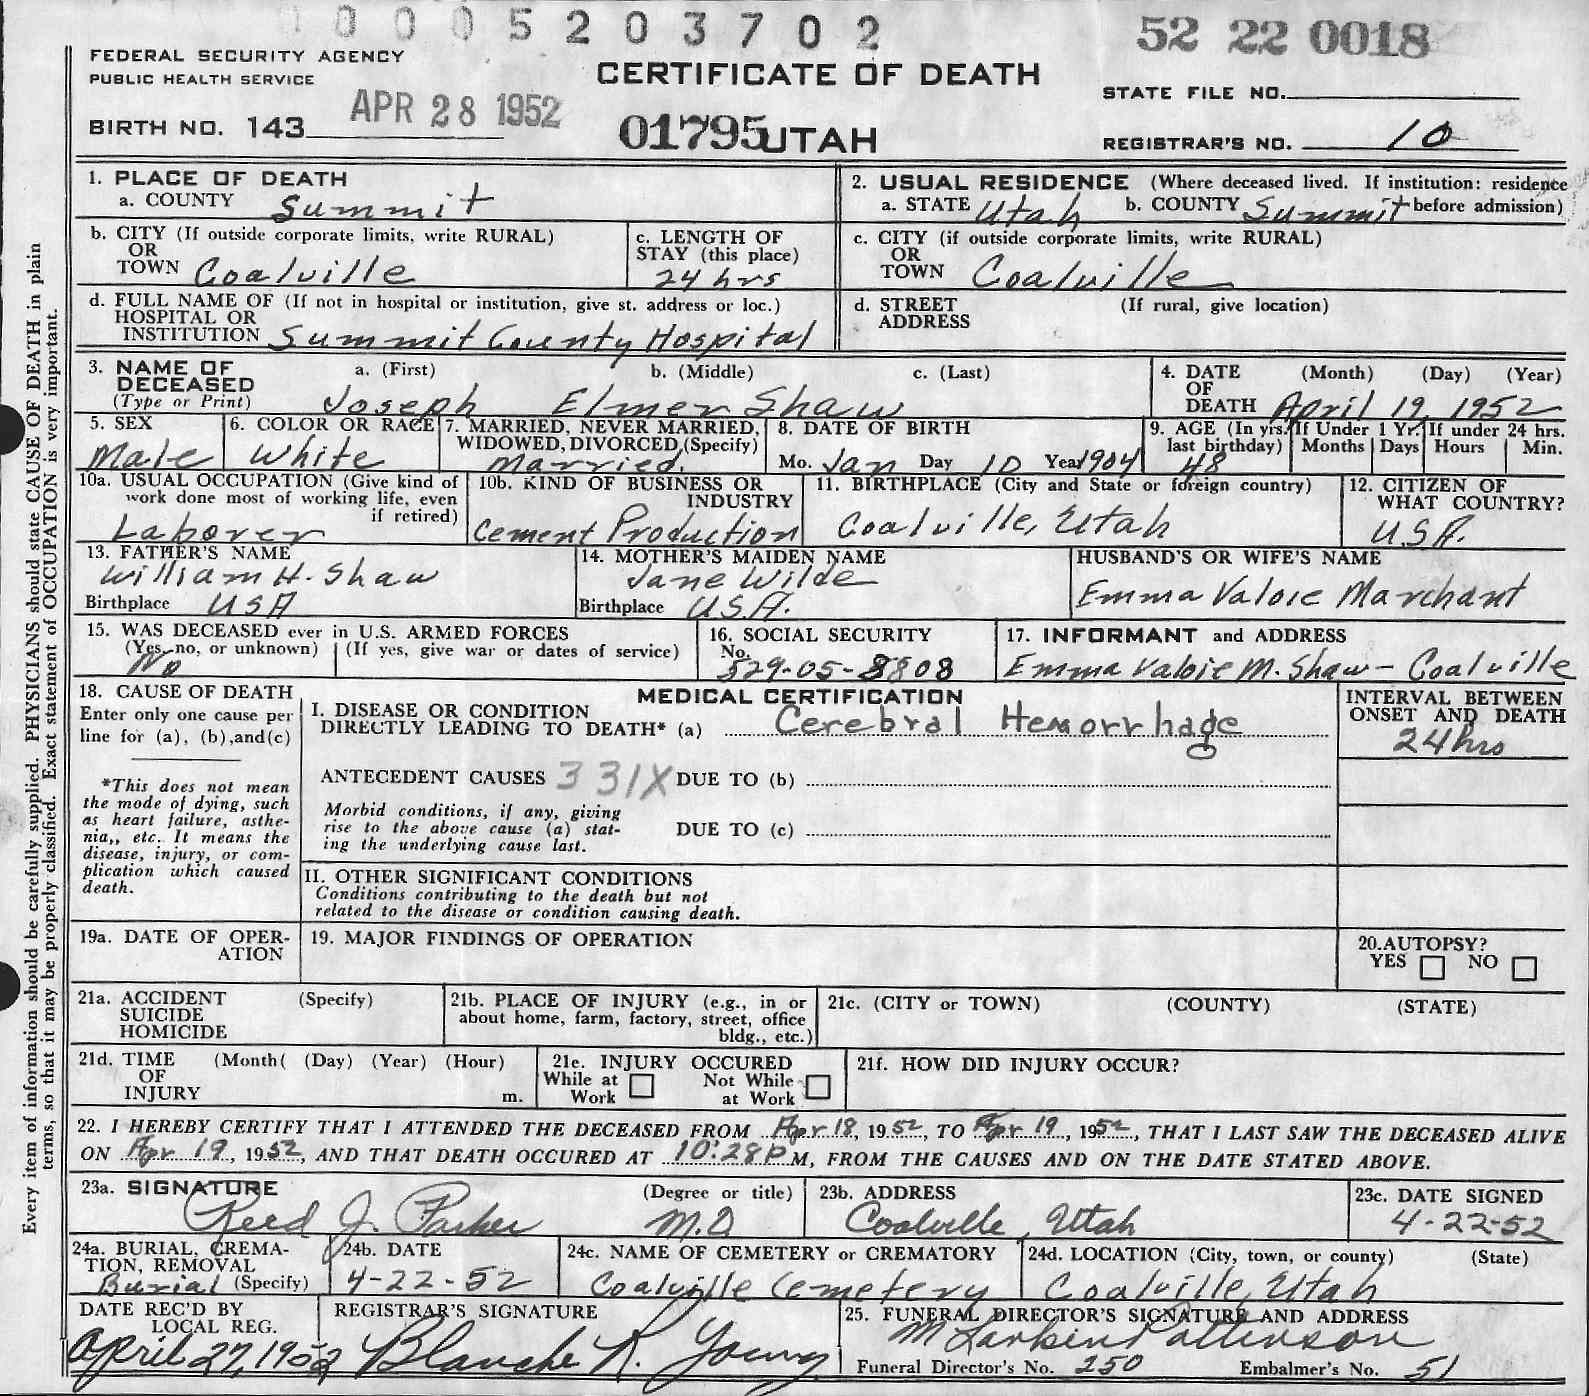 0005203702
52 22 0018
FEDERAL SECURITY AGENCY
PUBLIC HEALTH SERVICE
CERTIFICATE OF DEATH
STATE FILE NO.
BIRTH NO. 143 APR 28 1952
01795 UTAH
REGISTRAR'S NO. 10
Every item of information should be carefully supplied. PHYSICIANS should state CAUSE OF DEATH in plain
terms, so that it may be properly classified. Exact statement of OCCUPATION is very important.
1. PLACE OF DEATH
a. COUNTY Summit
2. USUAL RESIDENCE (Where deceased lived. If institution: residence
a. STATE Utah b. COUNTY Summit before admission)
b. CITY (If outside corporate limits, write RURAL)
OR
TOWN Coalville
c. LENGTH OF
STAY (this place)
24 hrs
c. CITY (if outside corporate limits, write RURAL)
OR
TOWN Coalville
d. FULL NAME OF (If not in hospital or institution, give st. address or loc.)
HOSPITAL OR
INSTITUTION Summit County Hospital
d. STREET (If rural, give location)
ADDRESS
3. NAME OF a. (First) b. (Middle) c. (Last)
DECEASED
(Type or Print) Joseph Elmer Shaw
4. DATE (Month) (Day) (Year)
OF
DEATH April 19, 1952
5. SEX
Male
6. COLOR OR RACE
White
7. MARRIED, NEVER MARRIED,
WIDOWED, DIVORCED (Specify)
Married.
8. DATE OF BIRTH
Mo. Jan Day 10 Year 1904
9. AGE (In yrs.
last birthday)
48
If Under 1 Yr.
Months Days
If under 24 hrs.
Hours Min.
10a. USUAL OCCUPATION (Give kind of
work done most of working life, even
if retired)
Laborer
10b. KIND OF BUSINESS OR
INDUSTRY
Cement Production
11. BIRTHPLACE (City and State or foreign country)
Coalville, Utah
12. CITIZEN OF
WHAT COUNTRY?
U.S.A.
13. FATHER'S NAME
William H. Shaw
Birthplace USA
14. MOTHER'S MAIDEN NAME
Jane Wilde
Birthplace U.S.A.
HUSBAND'S OR WIFE'S NAME
Emma Valoie Marchant
15. WAS DECEASED ever in U.S. ARMED FORCES
(Yes, no, or unknown) (If yes, give war or dates of service)
No
16. SOCIAL SECURITY
No.
529-05-8808
17. INFORMANT and ADDRESS
Emma Valoie M. Shaw - Coalville
18. CAUSE OF DEATH
Enter only one cause per
line for (a), (b), and (c)
*This does not mean
the mode of dying, such
as heart failure, asthe-
nia,, etc. It means the
disease, injury, or com-
plication which caused
death.
MEDICAL CERTIFICATION
I. DISEASE OR CONDITION
DIRECTLY LEADING TO DEATH* (a) Cerebral Hemorrhage
INTERVAL BETWEEN
ONSET AND DEATH
24 hrs
ANTECEDENT CAUSES 331X DUE TO (b)
Morbid conditions, if any, giving
rise to the above cause (a) stat-
ing the underlying cause last.
DUE TO (c)
II. OTHER SIGNIFICANT CONDITIONS
Conditions contributing to the death but not
related to the disease or condition causing death.
19a. DATE OF OPER-
ATION
19. MAJOR FINDINGS OF OPERATION
20. AUTOPSY?
YES NO
21a. ACCIDENT (Specify)
SUICIDE
HOMICIDE
21b. PLACE OF INJURY (e.g., in or
about home, farm, factory, street, office
bldg., etc.)
21c. (CITY or TOWN) (COUNTY) (STATE)
21d. TIME (Month( (Day) (Year) (Hour)
OF
INJURY m.
21e. INJURY OCCURED
While at Work Not While at Work
21f. HOW DID INJURY OCCUR?
22. I HEREBY CERTIFY THAT I ATTENDED THE DECEASED FROM Apr 18, 1952, TO Apr 19, 1952, THAT I LAST SAW THE DECEASED ALIVE
ON Apr 19, 1952, AND THAT DEATH OCCURED AT 10:28 P M, FROM THE CAUSES AND ON THE DATE STATED ABOVE.
23a. SIGNATURE (Degree or title)
Reed J. Parker M.D
23b. ADDRESS
Coalville, Utah
23c. DATE SIGNED
4-22-52
24a. BURIAL, CREMA-
TION, REMOVAL
Burial (Specify)
24b. DATE
4-22-52
24c. NAME OF CEMETERY or CREMATORY
Coalville Cemetery
24d. LOCATION (City, town, or county) (State)
Coalville, Utah
DATE REC'D BY
LOCAL REG.
April 27, 1952
REGISTRAR'S SIGNATURE
Blanche R. Young
25. FUNERAL DIRECTOR'S SIGNATURE AND ADDRESS
M Larkin Patterson
Funeral Director's No. 250 Embalmer's No. 51